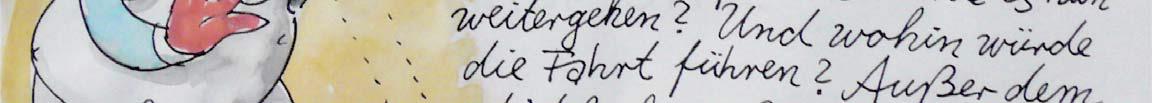 weitergehen? Und wohin würde
die Fahrt führen? Außer dem